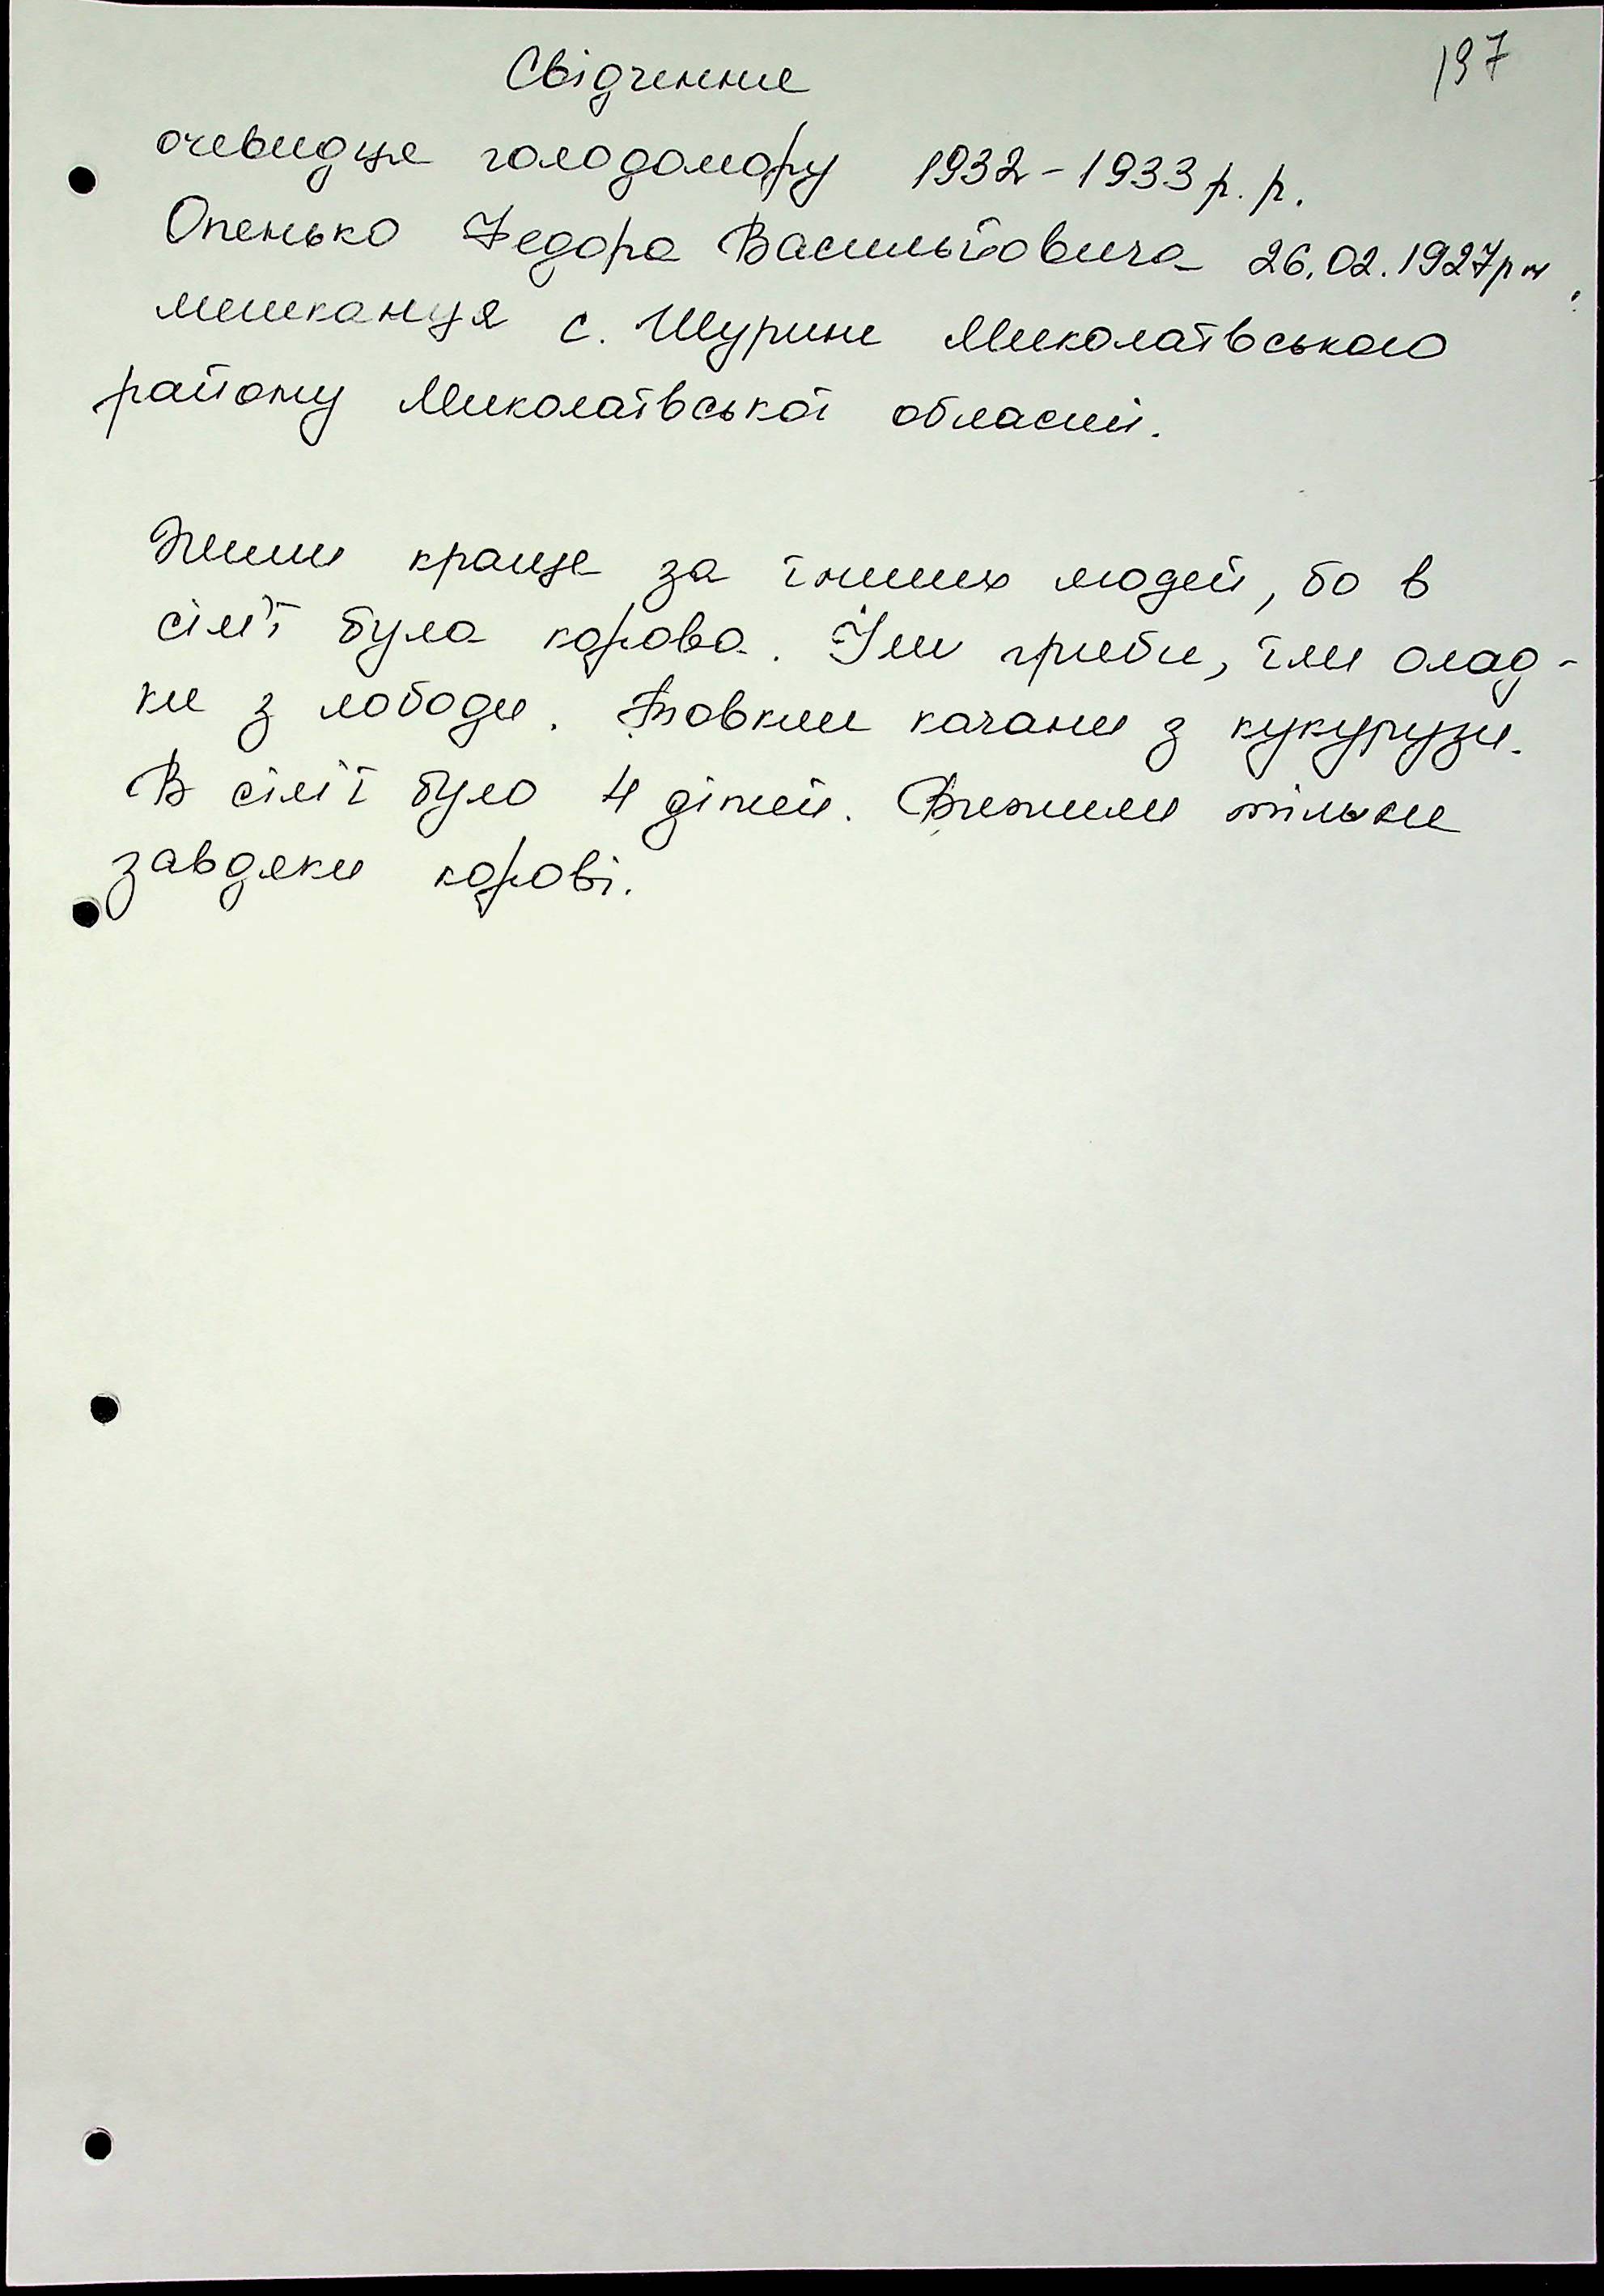 197
Свідчення
очевидця голодомору 1932-1933 р.р.
Опенько Федора Васильйовича 26.02.1927рн,
мешканця с. Шурине Миколаївського
району Миколаївської області.
Жили краще за інших людей, бо в
сім'ї була корова. Їли гриби, їли олад-
ки з лободи. Товкли качани з кукурузи.
В сім'ї було 4 дітей. Вижили тільки
завдяки корові.